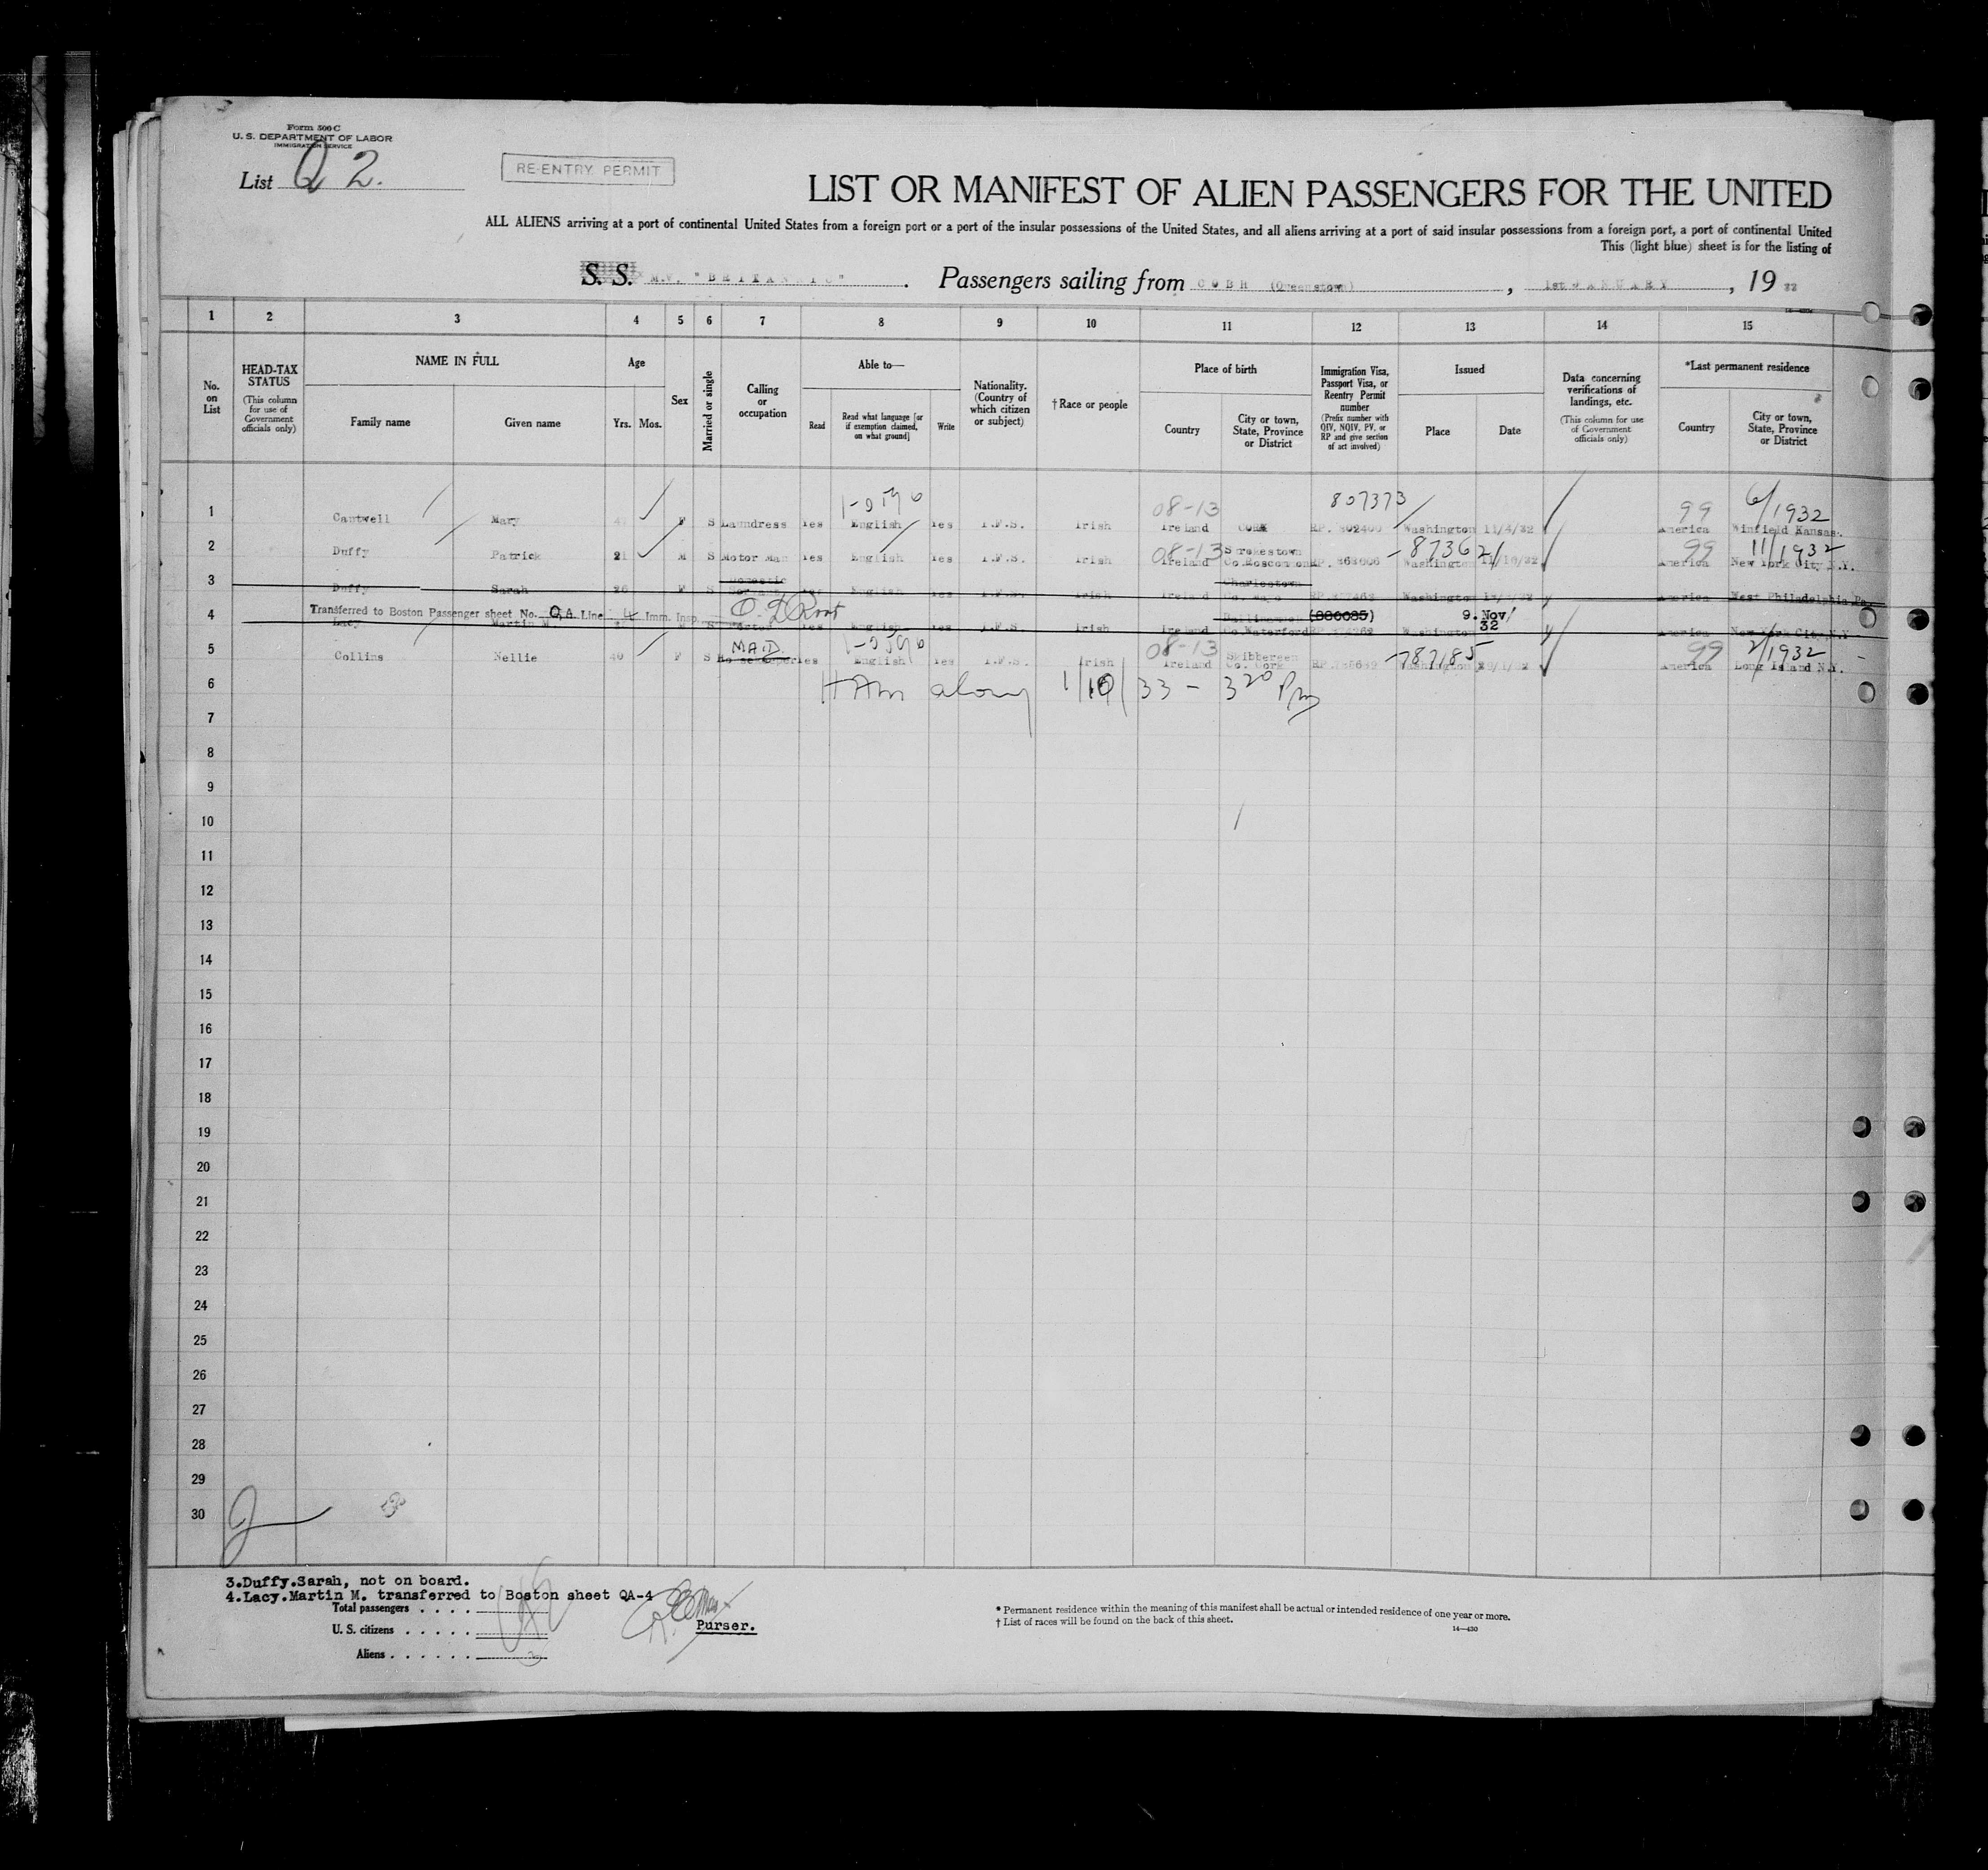 Form 500 C
U. S. DEPARTMENT OF LABOR
IMMIGRATION SERVICE
List Q 2.
RE-ENTRY PERMIT
LIST OR MANIFEST OF ALIEN PASSENGERS FOR THE UNITED
ALL ALIENS arriving at a port of continental United States from a foreign port or a port of the insular possessions of the United States, and all aliens arriving at a port of said insular possessions from a foreign port, a port of continental United
This (light blue) sheet is for the listing of
S. S. M.V. "BRITANNIC". Passengers sailing from COBH (Queenstown), 1st JANUARY, 19 33
1 2 3 4 5 6 7 8 9 10 11 12 13 14 15
No. on List
HEAD-TAX STATUS (This column for use of Government officials only)
NAME IN FULL
Family name Given name
Age
Yrs. Mos.
Sex
Married or single
Calling or occupation
Able to—
Read
Read what language [or if exemption claimed, on what ground]
Write
Nationality. (Country of which citizen or subject)
† Race or people
Place of birth
Country
City or town, State, Province or District
Immigration Visa, Passport Visa, or Reentry Permit number (Prefix number with QIV, NQIV, PV, or RP and give section of act involved)
Issued
Place Date
Data concerning verifications of landings, etc. (This column for use of Government officials only)
*Last permanent residence
Country
City or town, State, Province or District
08-13 807373 99 6/1932
1 Cantwell Mary F S Laundress Yes English Yes I.F.S. Irish Ireland Cork RP. Washington 11/4/32 America Winfield Kansas.
08-13 Strokestown 99 11/1932
2 Duffy Patrick 21 M S Motor Man Yes English Yes I.F.S. Irish Ireland Co.Roscommon RP. Washington America New York City N.Y.
Domestic Charlestown
3 Duffy Sarah 26 F S Servant Yes English Yes I.F.S. Irish Ireland Co. Mayo Washington America West Philadelphia Pa.
Transferred to Boston Passenger sheet No. QA Line 4 Imm. Insp. (880085) 9. Nov/32
4 Lacy Martin M. M S Porter Yes English Yes I.F.S. Irish Ireland Co Waterford Washington America New York City, N.Y.
MAID 08-13 Skibbereen 787185 99 2/1932
5 Collins Nellie 40 F S Housekeeper Yes English Yes I.F.S. Irish Ireland Co. Cork Washington America Long Island N.Y.
6 1/10/33 - 3 20 Pm
7
8
9
10
11
12
13
14
15
16
17
18
19
20
21
22
23
24
25
26
27
28
29
30
3.Duffy.Sarah, not on board.
4.Lacy.Martin M. transferred to Boston sheet QA-4
Total passengers . . . .
U. S. citizens . . . . .
Aliens . . . . . . 3
Purser.
* Permanent residence within the meaning of this manifest shall be actual or intended residence of one year or more.
† List of races will be found on the back of this sheet.
14—430